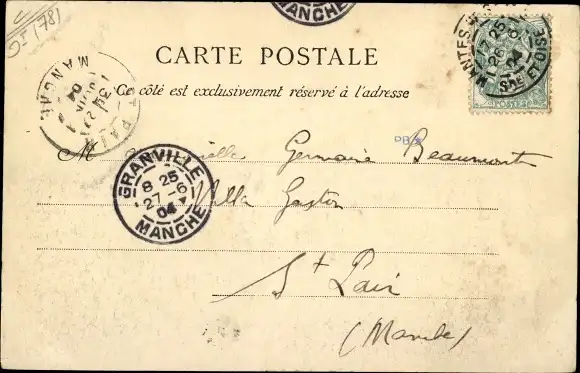 (78)
MANCHE
CARTE POSTALE
Ce côté est exclusivement réservé à l'adresse
MANTES
25
26 6
04
SNE ET OISE
POSTES
ST PAIR
04
MANCHE
M Germaine Beaumont
GRANVILLE
8 25
27-6
04
MANCHE
Villa Gaston
St Pair
(Manche)